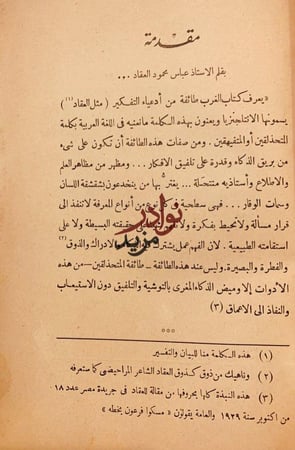 مقدمة
بقلم الاستاذ عباس محمود العقاد ...
«يعرف كتاب الغرب طائفة من أدعياء التفكير (مثل العقاد (١))
يسمونها الانتلجنزيا ويعنون بهذه الكلمة مانعنيه فى اللغة العربية بكلمة
المتحذلقين أو المتفيهقين. ومن صفات هذه الطائفة أن تكون على شىء
من بريق الذكاء وقدرة على تلفيق الافكار... ومظهر من مظاهر العلم
والاطلاع وأستاذيه منتحلة... يغتر بها من ينخدعون بشقشقة اللسان
وسمات الوقار... فهى سطحية أنواع المعرفة لاتنفذ الى
قرار مسألة ولا تحيط بفكرة ولا حقيقته البسيطة ولا على
استقامته الطبيعية. لان الفهم عمل يشترك الادراك والذوق (٢)
والفطرة والبصيرة. وليس عند هذه الطائفة – طائفة المتحذلقين – من هذه
الأدوات إلا وميض الذكاء المغرى بالتوشية والتلفيق دون الاستيعاب
والنفاذ الى الاعماق (٣)
نوادر
مزيد
(١) هذه الكلمة منا للبيان والتفسير
(٢) وناهيك من ذوق كذوق العقاد الشاعر المراحيضى كما ستعرفه
(٣) هذه النبذة كلها بحروفها من مقالة للعقاد فى جريدة مصر عدد ١٨
من اكتوبر سنة ١٩٢٩ والعامة يقولون «مسكوا فرعون بخطه»